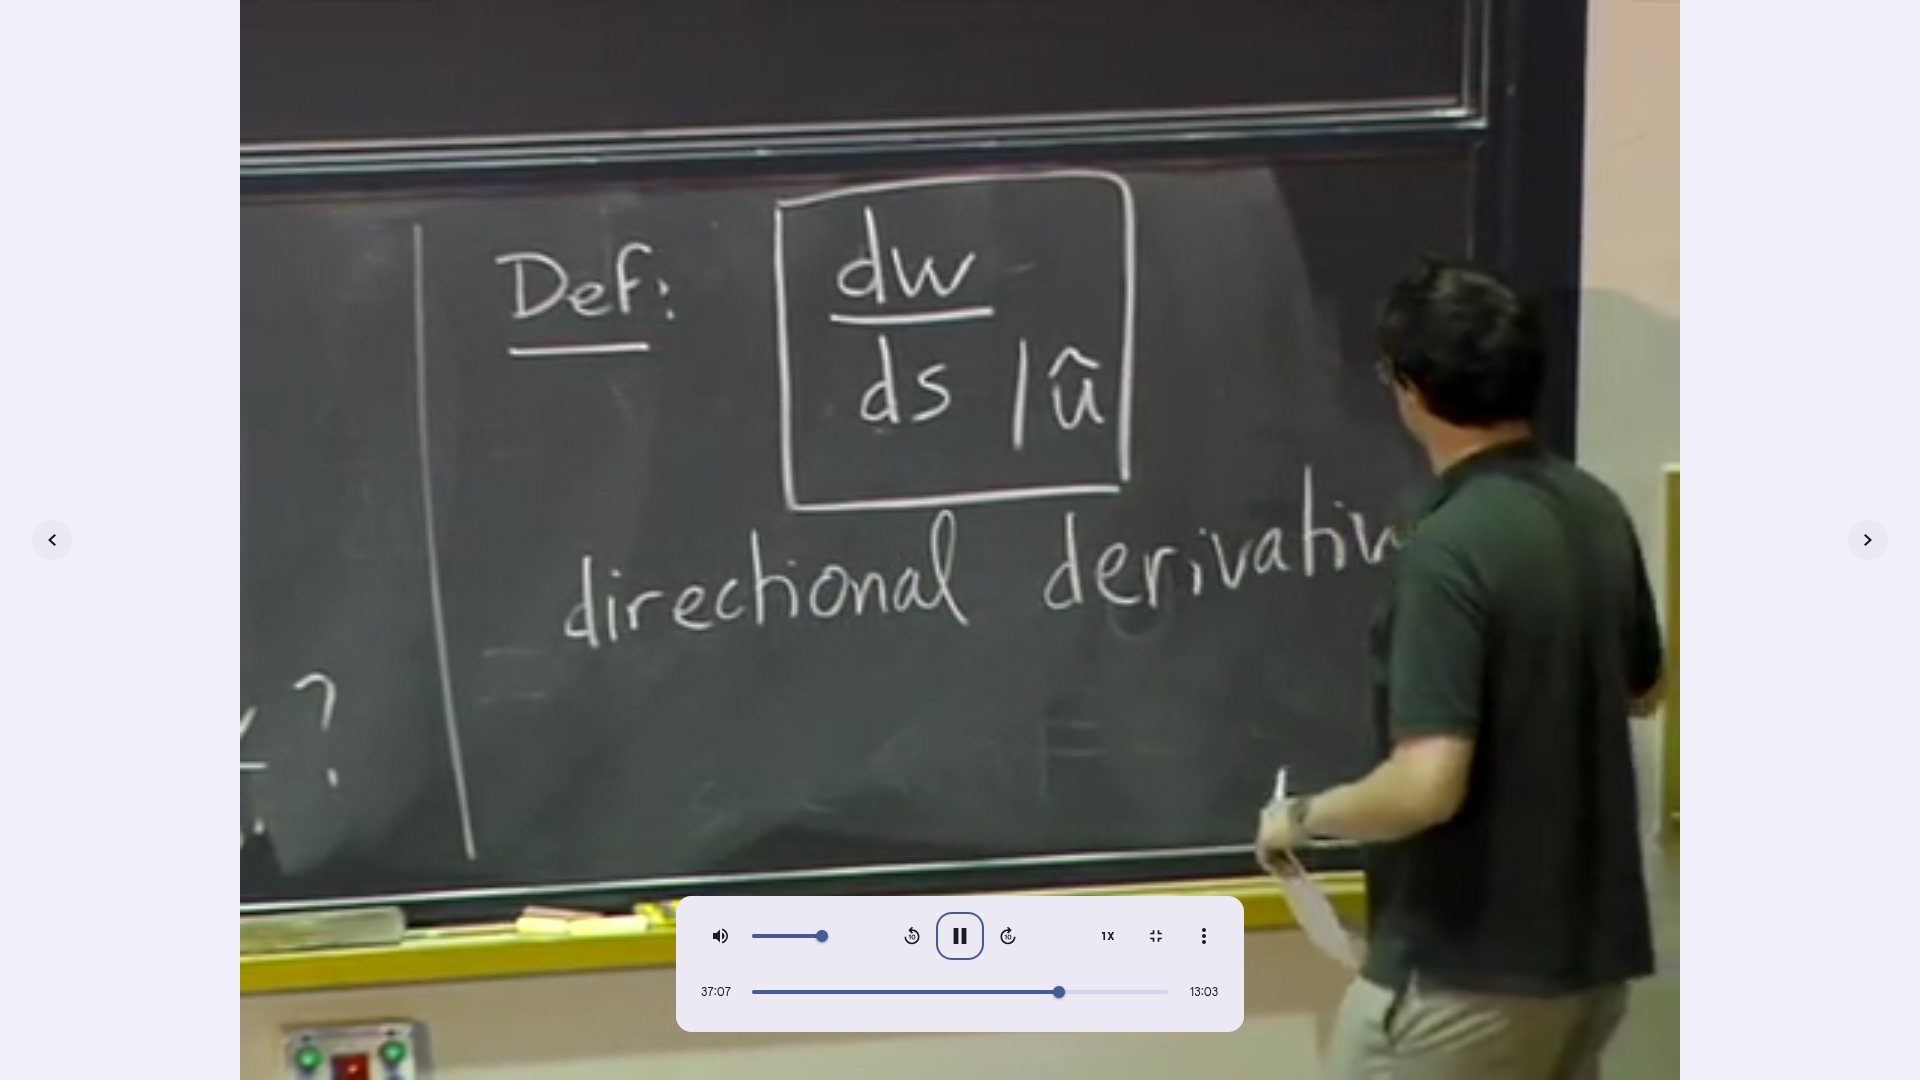 Def:
dw
ds |û
directional derivativ
?
10
10
1X
37:07
13:03